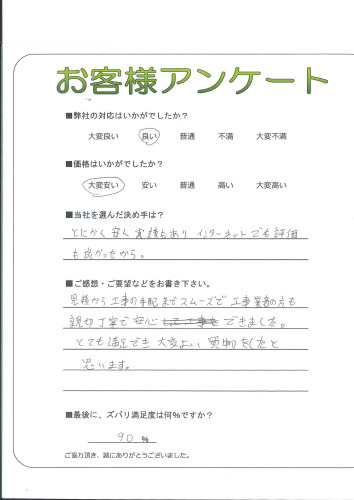 お客様アンケート
■弊社の対応はいかがでしたか?
大変良い 良い 普通 不満 大変不満
■価格はいかがでしたか?
大変安い 安い 普通 高い 大変高い
■当社を選んだ決め手は?
とにかく安く実績もあり インターネットでも評価
も良かったから。
■ご感想・ご要望などをお書き下さい。
見積から工事の手配までスムーズで工事業者の方も
親切丁寧で安心して工事をできました。
とても満足でき大変よい買物をしたと
思います。
■最後に、ズバリ満足度は何%ですか?
90 %
ご協力頂き、誠にありがとうございました。